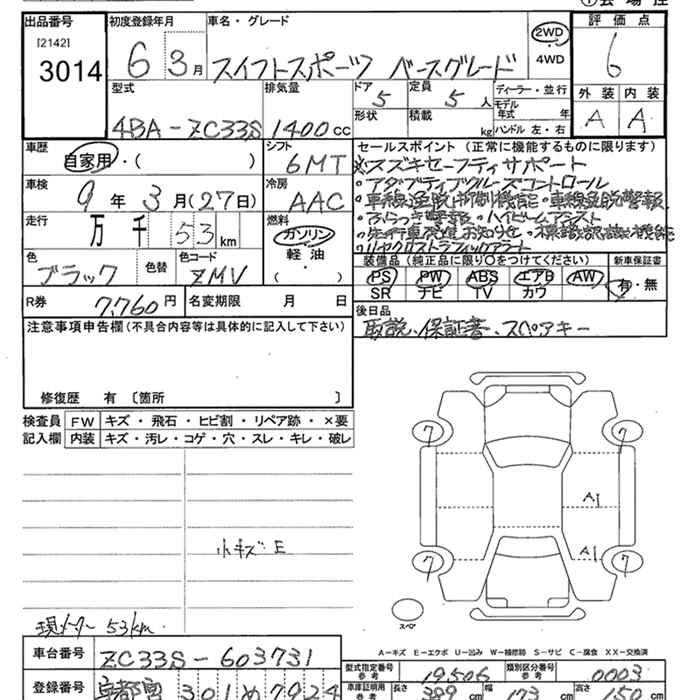 出品番号 初度登録年月 車名・グレード 2WD 4WD 評価点
[2142]
3014 6 3月 スイフトスポーツ ベースグレード 6
型式 排気量 ドア 5 定員 5人 ディーラー・並行 外装 内装
形状 積載 kg モデル年式 年 ハンドル 左・右
4BA-ZC33S 1400cc A A
車歴 自家用・( ) シフト 6MT
セールスポイント (正常に機能するものに限ります)
※スズキセーフティサポート
・アダプティブクルーズコントロール
・車線逸脱抑制機能・車線逸脱警報
・ふらつき警報・ハイビームアシスト
・先行車発進お知らせ・標識認識機能
・リヤクロストラフィックアラート
車検 9年3月(27日) 冷房 AAC
走行 万 千 53km 燃料 ガソリン 軽油 ( )
色 ブラック 色替 色コード ZMV
装備品 (純正品に限り○をつけてください) 新車保証書
PS PW ABS エアB AW 有・無
SR ナビ TV カワ
R券 7,760円 名変期限 月 日
後日品
取説、保証書、スペアキー
注意事項申告欄(不具合内容等は具体的に記入して下さい)
修復歴 有 〔箇所 〕
検査員記入欄 FW キズ・飛石・ヒビ割・リペア跡・×要
内装 キズ・汚レ・コゲ・穴・スレ・キレ・破レ
7 7
A1
A1
7 7
小キズ E
スペア
現メーター 53km
A-キズ E-エクボ U-凹み W-補修跡 S-サビ C-腐食 XX-交換済
車台番号 ZC33S-603731
型式指定番号 参考 19506 類別区分番号 参考 0003
登録番号 301 め 7924
車庫証明用 参考 長さ 389cm 幅 173cm 高さ 150cm